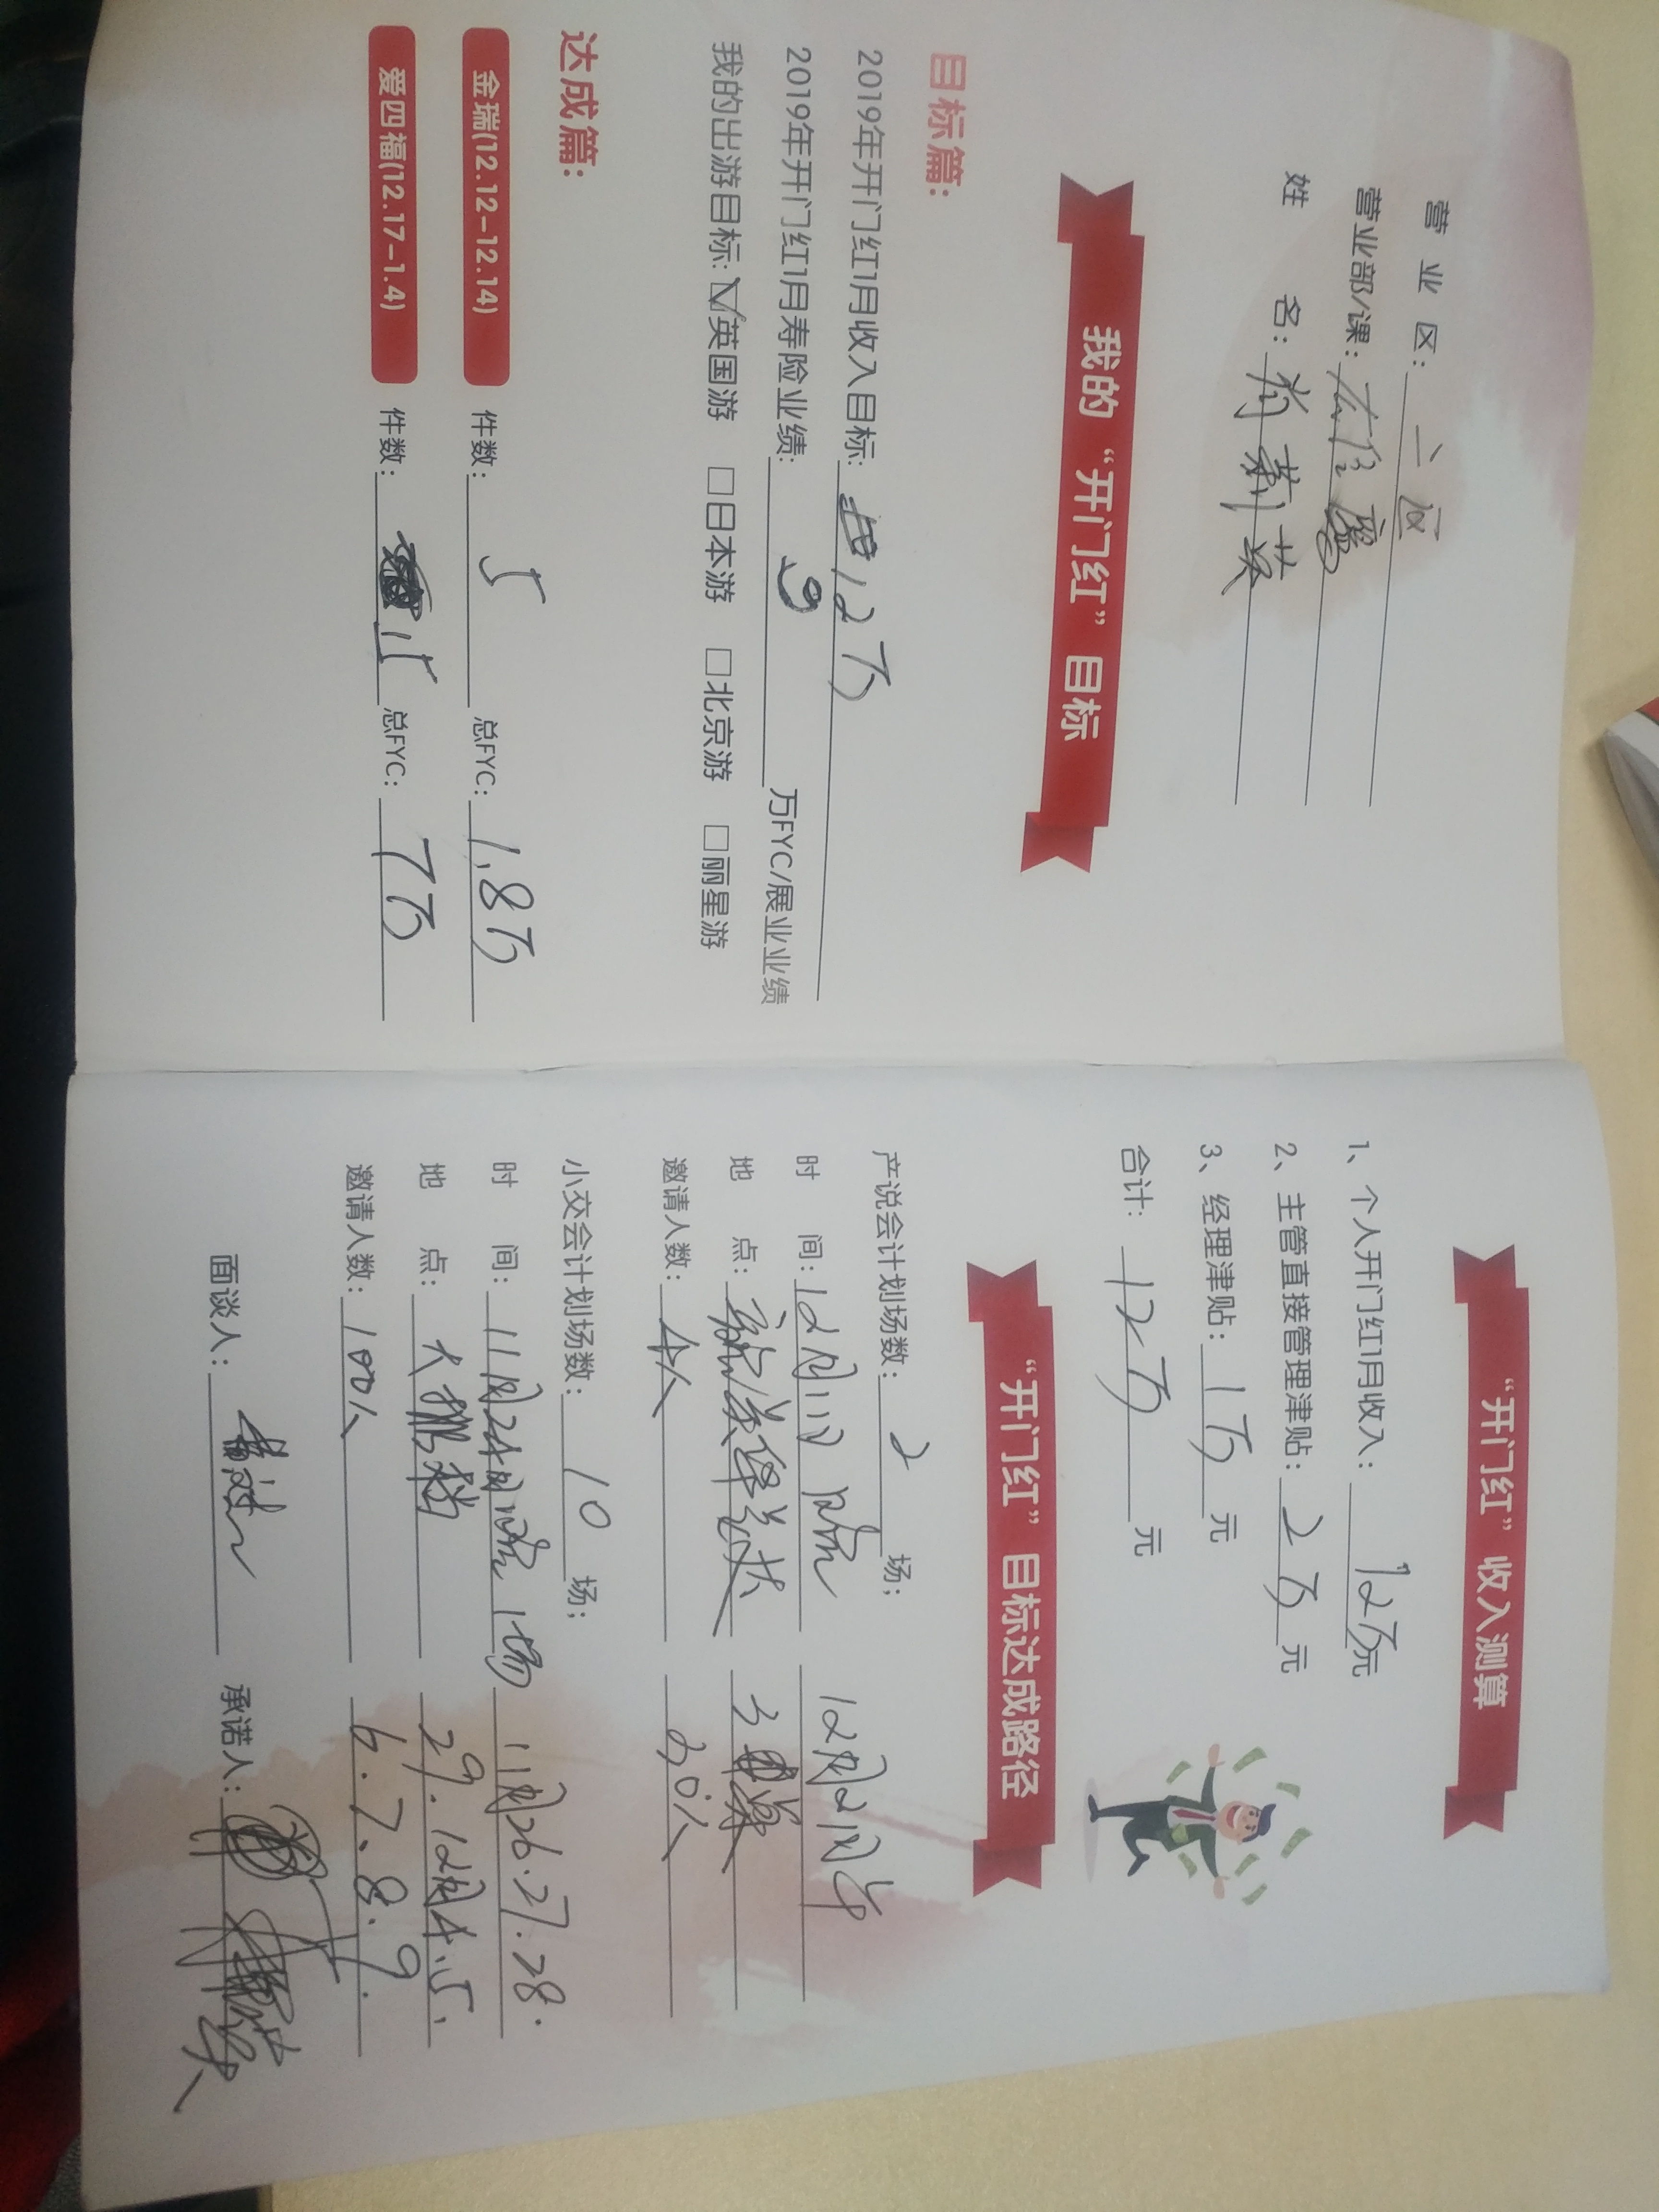 营业区：二区
营业部/课：
姓名：
我的“开门红”目标
目标篇：
2019年开门红1月收入目标：12万
2019年开门红1月寿险业绩：9万FYC/展业业绩
我的出游目标：☑英国游 □日本游 □北京游 □丽星游
达成篇：
金瑞(12.12-12.14) 件数：5 总FYC：1.8万
爱四福(12.17-1.4) 件数：15 总FYC：7万
“开门红”收入测算
1、个人开门红1月收入：12万元
2、主管直接管理津贴：2万元
3、经理津贴：1万元
合计：12万元
“开门红”目标达成路径
产说会计划场数：2场；
时间：12月11日 12月21日
地点：
邀请人数：4人 30人
小交会计划场数：10场；
时间：11月24日 1场 11月26.27.28.
地点：29.12月4.5.
邀请人数：100人 6.7.8.9.
面谈人：
承诺人：